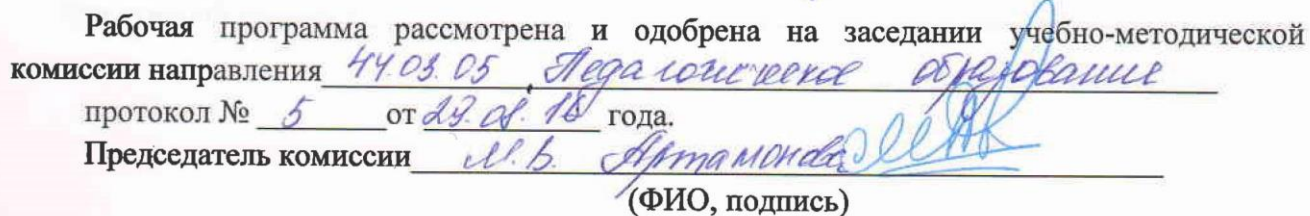 Рабочая программа рассмотрена и одобрена на заседании учебно-методической
комиссии направления 44.03.05 Педагогическое образование
протокол № 5 от года.
Председатель комиссии М.В. Артамонова
(ФИО, подпись)